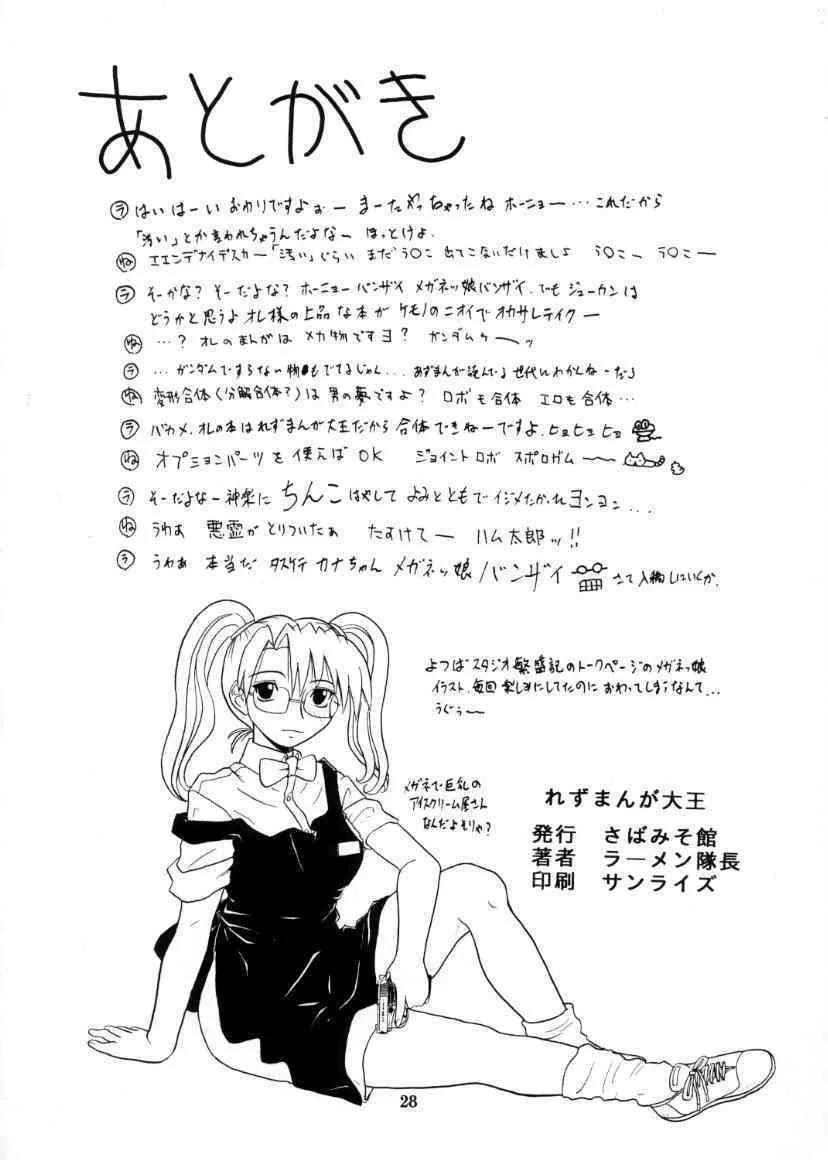 あとがき
ラ はいはーい おわりですよぉー まーたやっちゃったね ホーニョー…これだから
「汚い」とか言われちゃうんだよなー ほっとけよ.
ね エエンデナイデスカー「汚い」ぐらい まだう○こ 出てこないだけましよ う○こー う○こー
ラ そーかな? そーだよな? ホーニョーバンザイ メガネッ娘バンザイ.でもジューカンは
どうかと思うよ オレ様の上品な本が ケモノのニオイでオカサレテイクー
ね …? オレのまんがは メカ物ですヨ? ガンダムゥーーッ
ラ …ガンダムですらない物もでてるじゃん...あずまんが読んでる世代にわかんねーだろ
ね 変形合体(分解合体?)は 男の夢ですよ? ロボも合体 エロも合体…
ラ バカメ.オレの本はれずまんが大王だから 合体できねーですよ.ヒョヒョヒョ
ね オプションパーツを使えばOK ジョイントロボ スポロガム〜〜
ラ そーだよなー神楽に ちんこはやして よみとともでイジメたかれ ヨンヨン...
ね うわぁ 悪霊がとりついたぁ たすけてー ハム太郎ッ!!
ラ うわぁ 本当だ タスケテ カナちゃん メガネッ娘 バンザイ さて入稿しにいくか.
よつばスタジオ繁盛記のトークページのメガネっ娘
イラスト,毎回楽しみにしてたのに おわってしまうなんて...
うぐぅ〜
メガネで巨乳の
アイスクリーム屋さん
なんだよもりゃ?
れずまんが大王
発行 さばみそ館
著者 ラーメン隊長
印刷 サンライズ
28